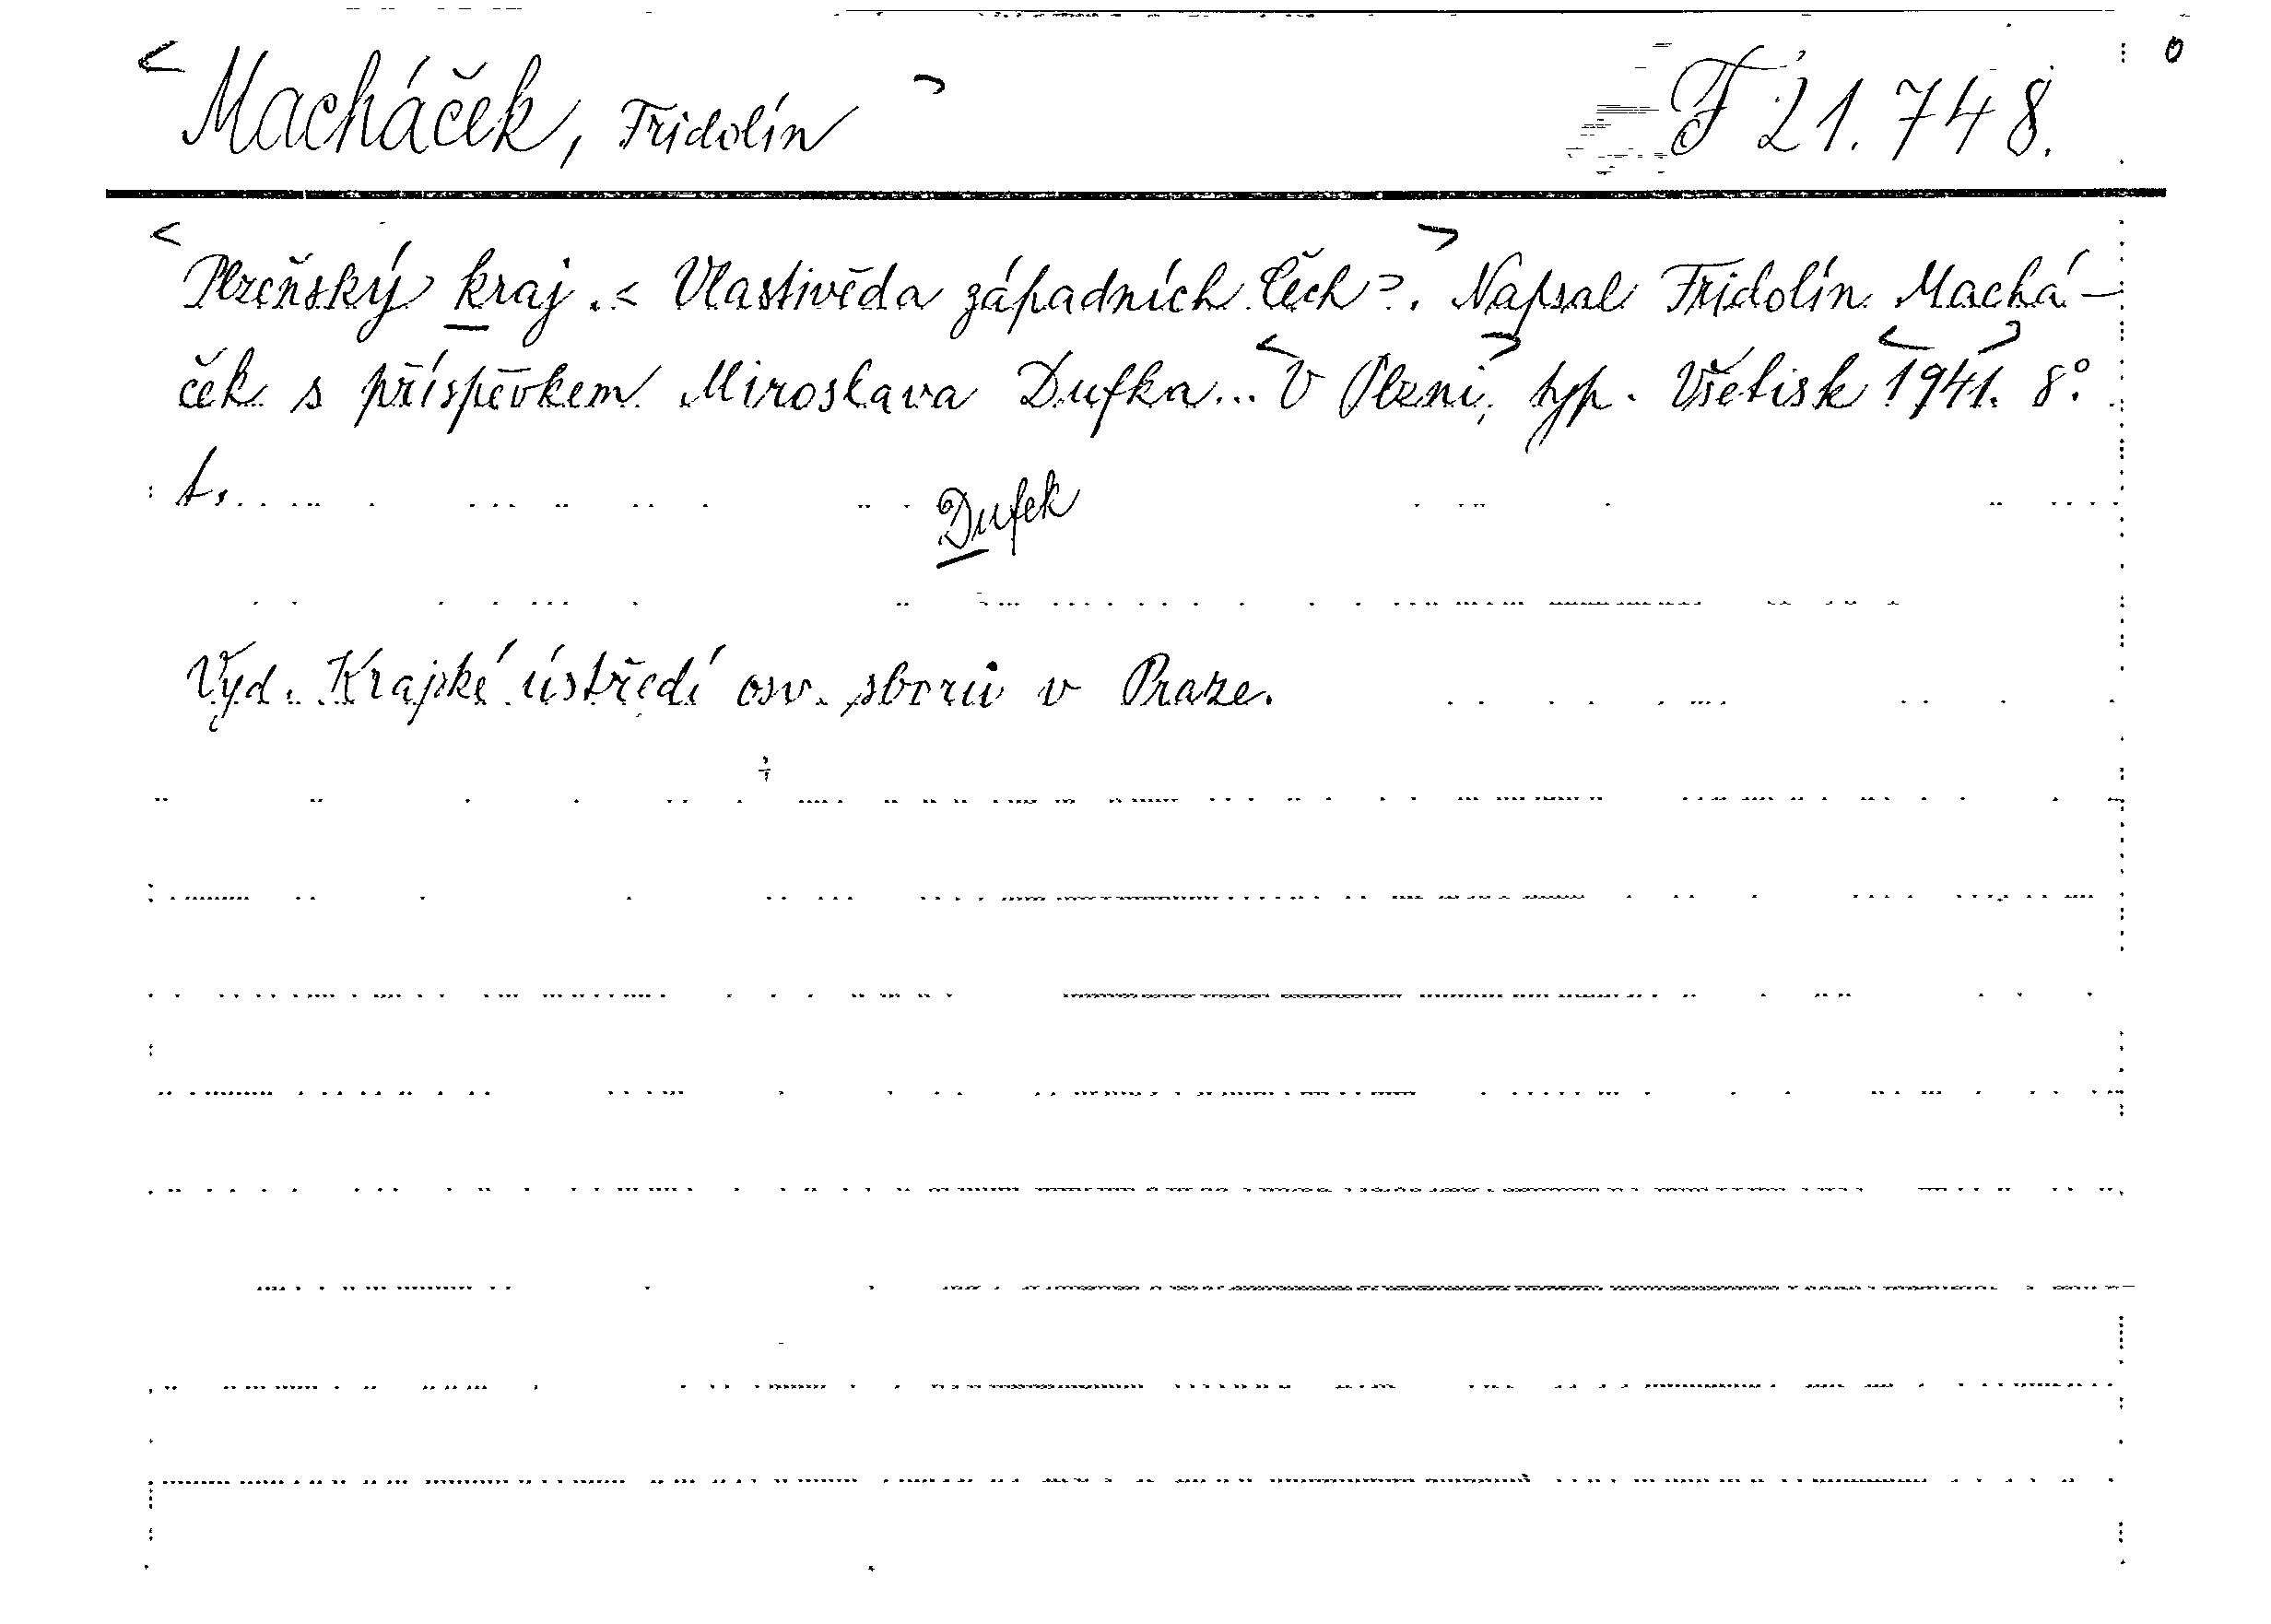 < Macháček, Fridolín > F 21.748. 0
< Plzeňský kraj. < Vlastivěda západních Čech >. > Napsal Fridolín Machá-
ček s příspěvkem Miroslava Dufka... < V Plzni, > typ. Všetisk < 1941. > 8°
t.
Dufek
Vyd. Krajské ústředí osv. sborů v Praze.